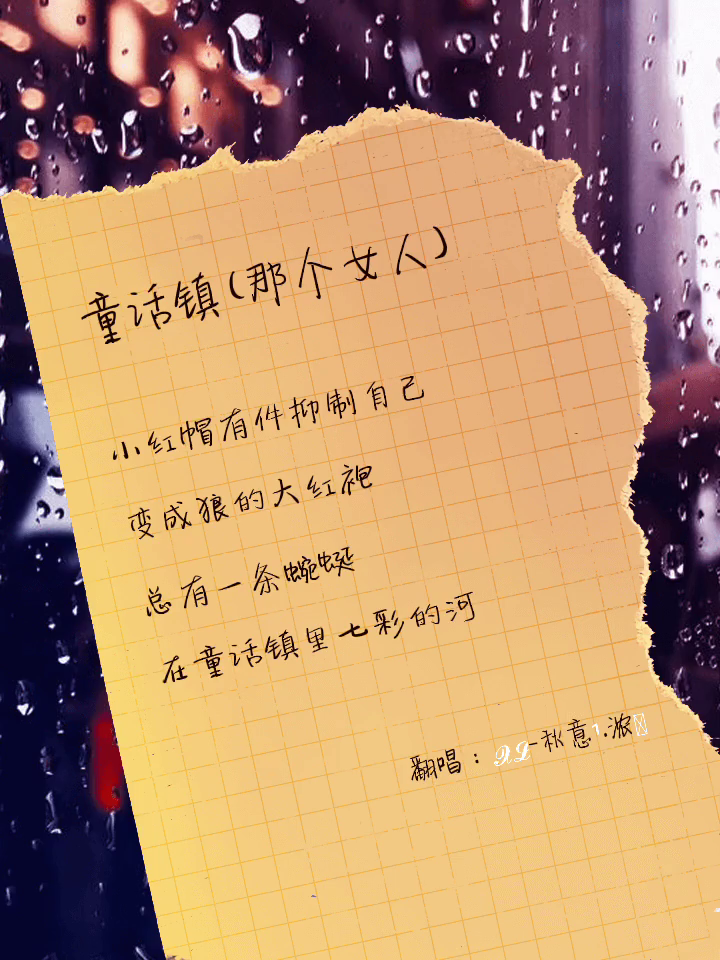 童话镇(那个女人)
小红帽有件抑制自己
变成狼的大红袍
总有一条蜿蜒
在童话镇里七彩的河
翻唱：𝒳ℒ-秋意1.浓